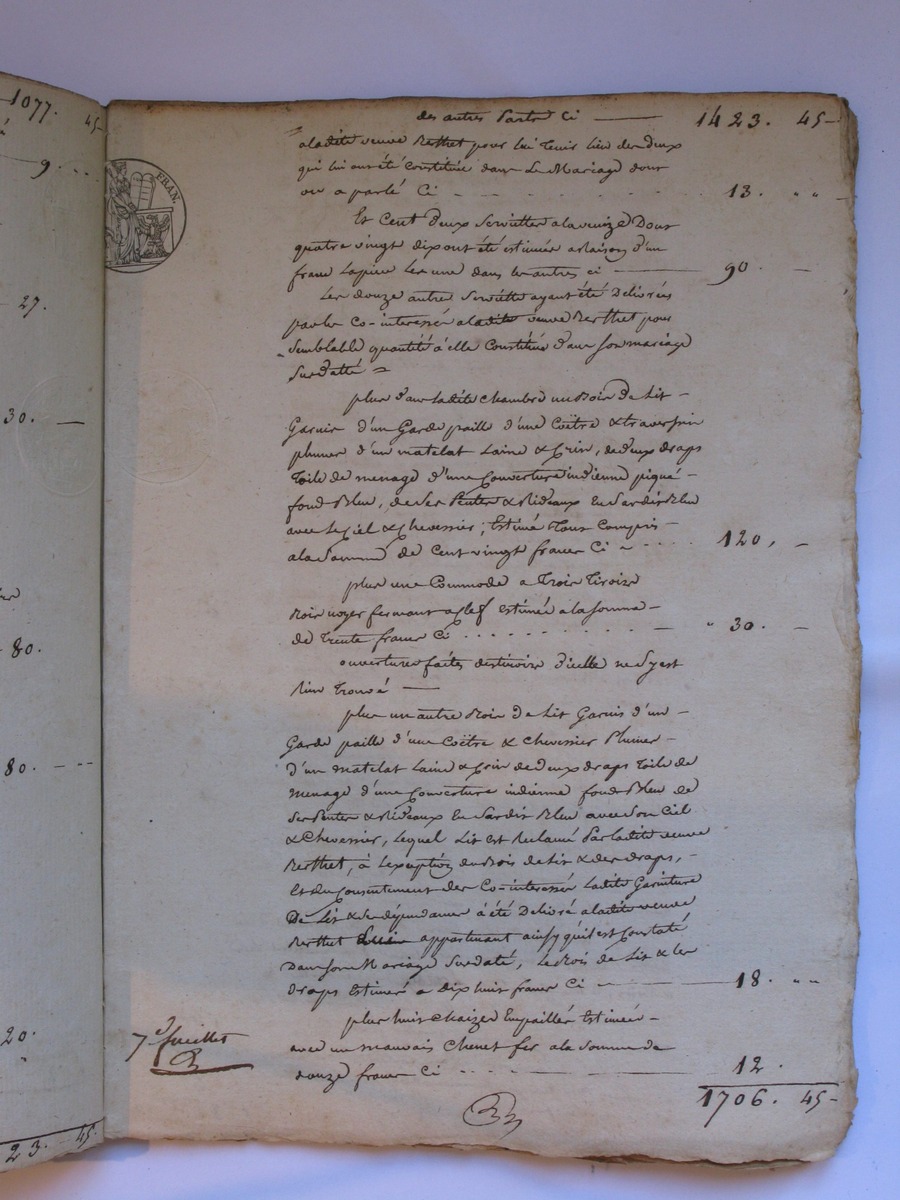 1077. 45-
9. ..
27.
30. —
80.
80. - --
20.
23. 45.
FRAN.
des autres Parts Ci — 1423. 45-
aladite veuve Berthet pour lui Tenir lieu des deux
qui lui ont été Constitués dans le Mariage dont
on a parlé Ci - - - - 13. " "
Et Cent deux Serviettes alavenize Dont
quatre vingt dix ont été estimées a Raison d'un
franc lapiece les unes dans les autres ci — 90. —
Les douze autres Serviettes ayant été Delivrées
par les Co-interessés aladite veuve Berthet pour
Semblable quantité à elle Constituée dans Son mariage
Susdatté =
plus dans ladite Chambre un Bois de Lit -
Garni d'un Garde paille d'une Coëtre & traversin
plumes d'un matelat Laine & Crin, de deux draps
Toile de menage d'une Couverture indienne piqué -
fond Bleu, de Ses Pentes & Rideaux En Sardis Bleu
avec le Ciel & Chevessier; Estimé Tout Compris -
ala Somme de Cent vingt francs Ci - .... 120, —
plus une Commode a Trois Tiroirs
Bois noyer fermant a clef estimée ala somme -
de Trente francs Ci ........ — " 30. —
ouverture faites des tiroirs d'icelle ne S'y est
Rien Trouvé —
plus un autre Bois de Lit Garnis d'un -
Garde paille d'une Coëtre & Chevessier Plumes -
d'un matelat Laine & Crin de deux draps Toile de
menage d'une Couverture indienne fond Bleu de
Ses Pentes & Rideaux En Sardis Bleu avec Son Ciel
& Chevessier, lequel Lit est Reclamé Par ladite veuve
Berthet, à L'exception du Bois de Lit & des draps, -
Et du Consentement des Co-interessés Ladite Garniture
De Lit & Ses dépendances à été Delivré aladite veuve
Berthet appartenant ainsy qu'il est Constaté
Dans Son Mariage Susdaté, Le Bois de Lit & les
draps Estimés a Dix huit francs Ci — 18. " "
plus huit Chaizes Empaillées Estimées -
avec un mauvais Chenet fer ala Somme de
douze francs Ci — 12
1706. 45-
7e feuillet